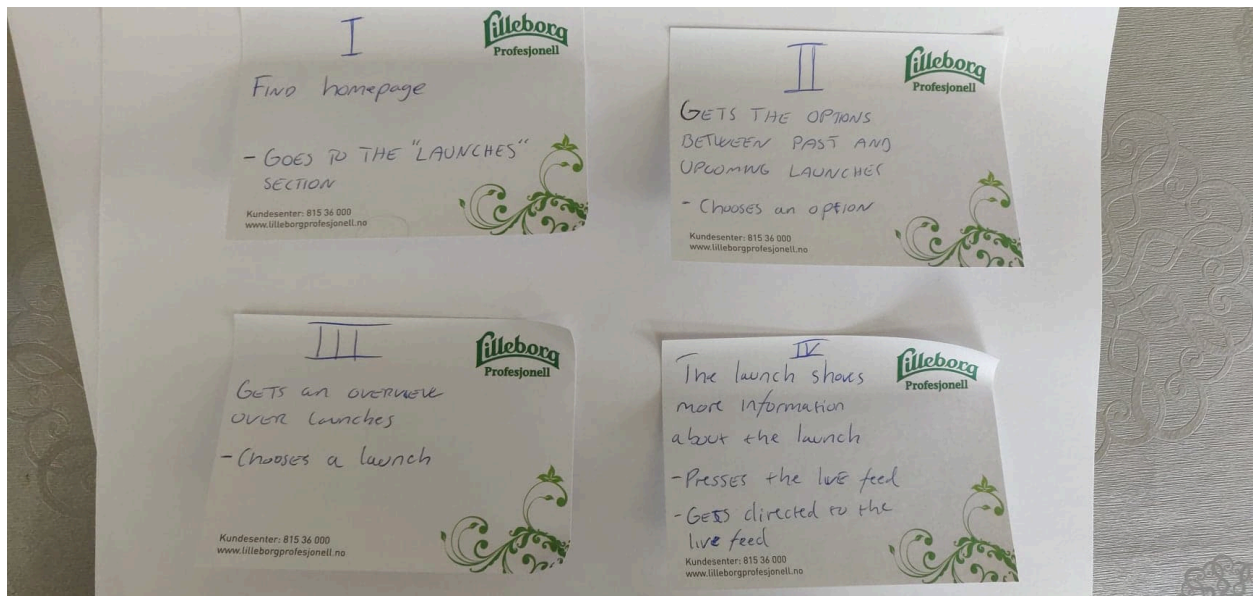 I
Lilleborg
Profesjonell
FIND homepage
- GOES TO THE "LAUNCHES"
SECTION
Kundesenter: 815 36 000
www.lilleborgprofesjonell.no
II
Lilleborg
Profesjonell
GETS THE OPTIONS
BETWEEN PAST AND
UPCOMING LAUNCHES
- CHOOSES an OPTION
Kundesenter: 815 36 000
www.lilleborgprofesjonell.no
III
Lilleborg
Profesjonell
GETS an OVERVIEW
OVER launches
- CHOOSES a launch
Kundesenter: 815 36 000
www.lilleborgprofesjonell.no
IV
Lilleborg
Profesjonell
The launch shows
more information
about the launch
- PRESSES the live feed
- GETS directed to the
live feed
Kundesenter: 815 36 000
www.lilleborgprofesjonell.no